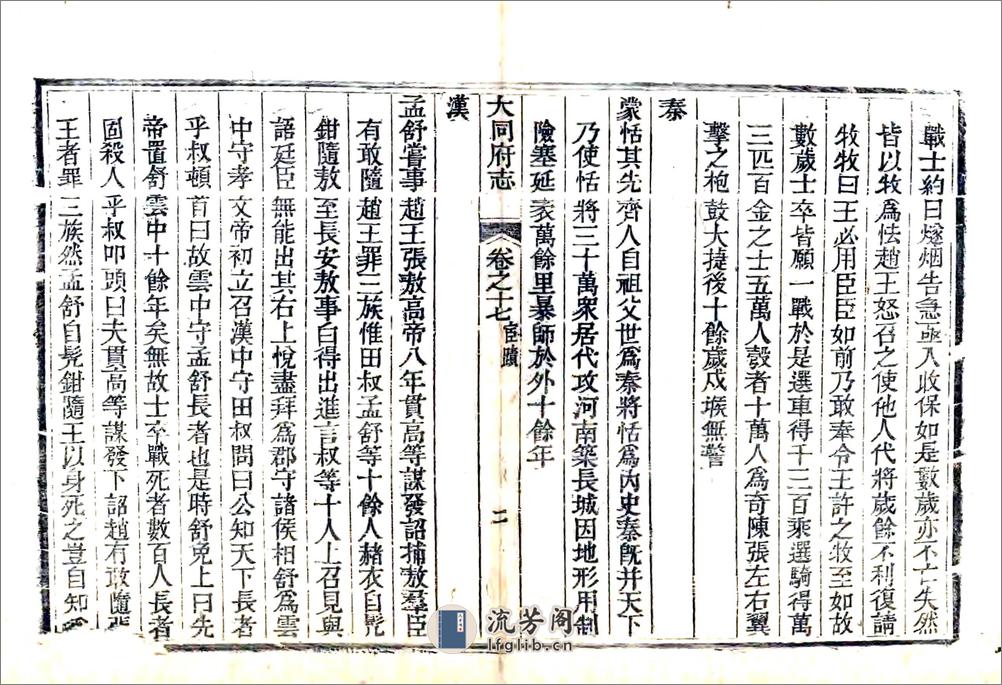 戰士約曰燧烟告急亟入收保如是數歲亦不亡失然
皆以牧爲怯趙王怒召之使他人代將歲餘不利復請
牧牧曰王必用臣臣如前乃敢奉令王許之牧至如故
數歲士卒皆願一戰於是選車得千二百乘選騎得萬
三匹百金之士五萬人彀者十萬人爲奇陳張左右翼
擊之枹鼓大捷後十餘歲戍堠無警
秦
蒙恬其先齊人自祖父世爲秦將恬爲內史秦旣并天下
乃使恬將三十萬衆居代攻河南築長城因地形用制
險塞延袤萬餘里暴師於外十餘年
大同府志 卷之十七 宦蹟 二
漢
孟舒嘗事趙王張敖高帝八年貫高等謀發詔捕敖羣臣
有敢隨趙王罪三族惟田叔孟舒等十餘人赭衣自髠
鉗隨敖至長安敖事白得出進言叔等十人上召見與
語廷臣無能出其右上悅盡拜爲郡守諸侯相舒爲雲
中守孝文帝初立召漢中守田叔問曰公知天下長者
乎叔頓首曰故雲中守孟舒長者也是時舒免上曰先
帝置舒雲中十餘年矣無故士卒戰死者數百人長者
固殺人乎叔叩頭曰夫貫高等謀發下詔趙有敢隨張
王者罪三族然孟舒自髠鉗隨王以身死之豈自知
流芳阁
lfglib.cn